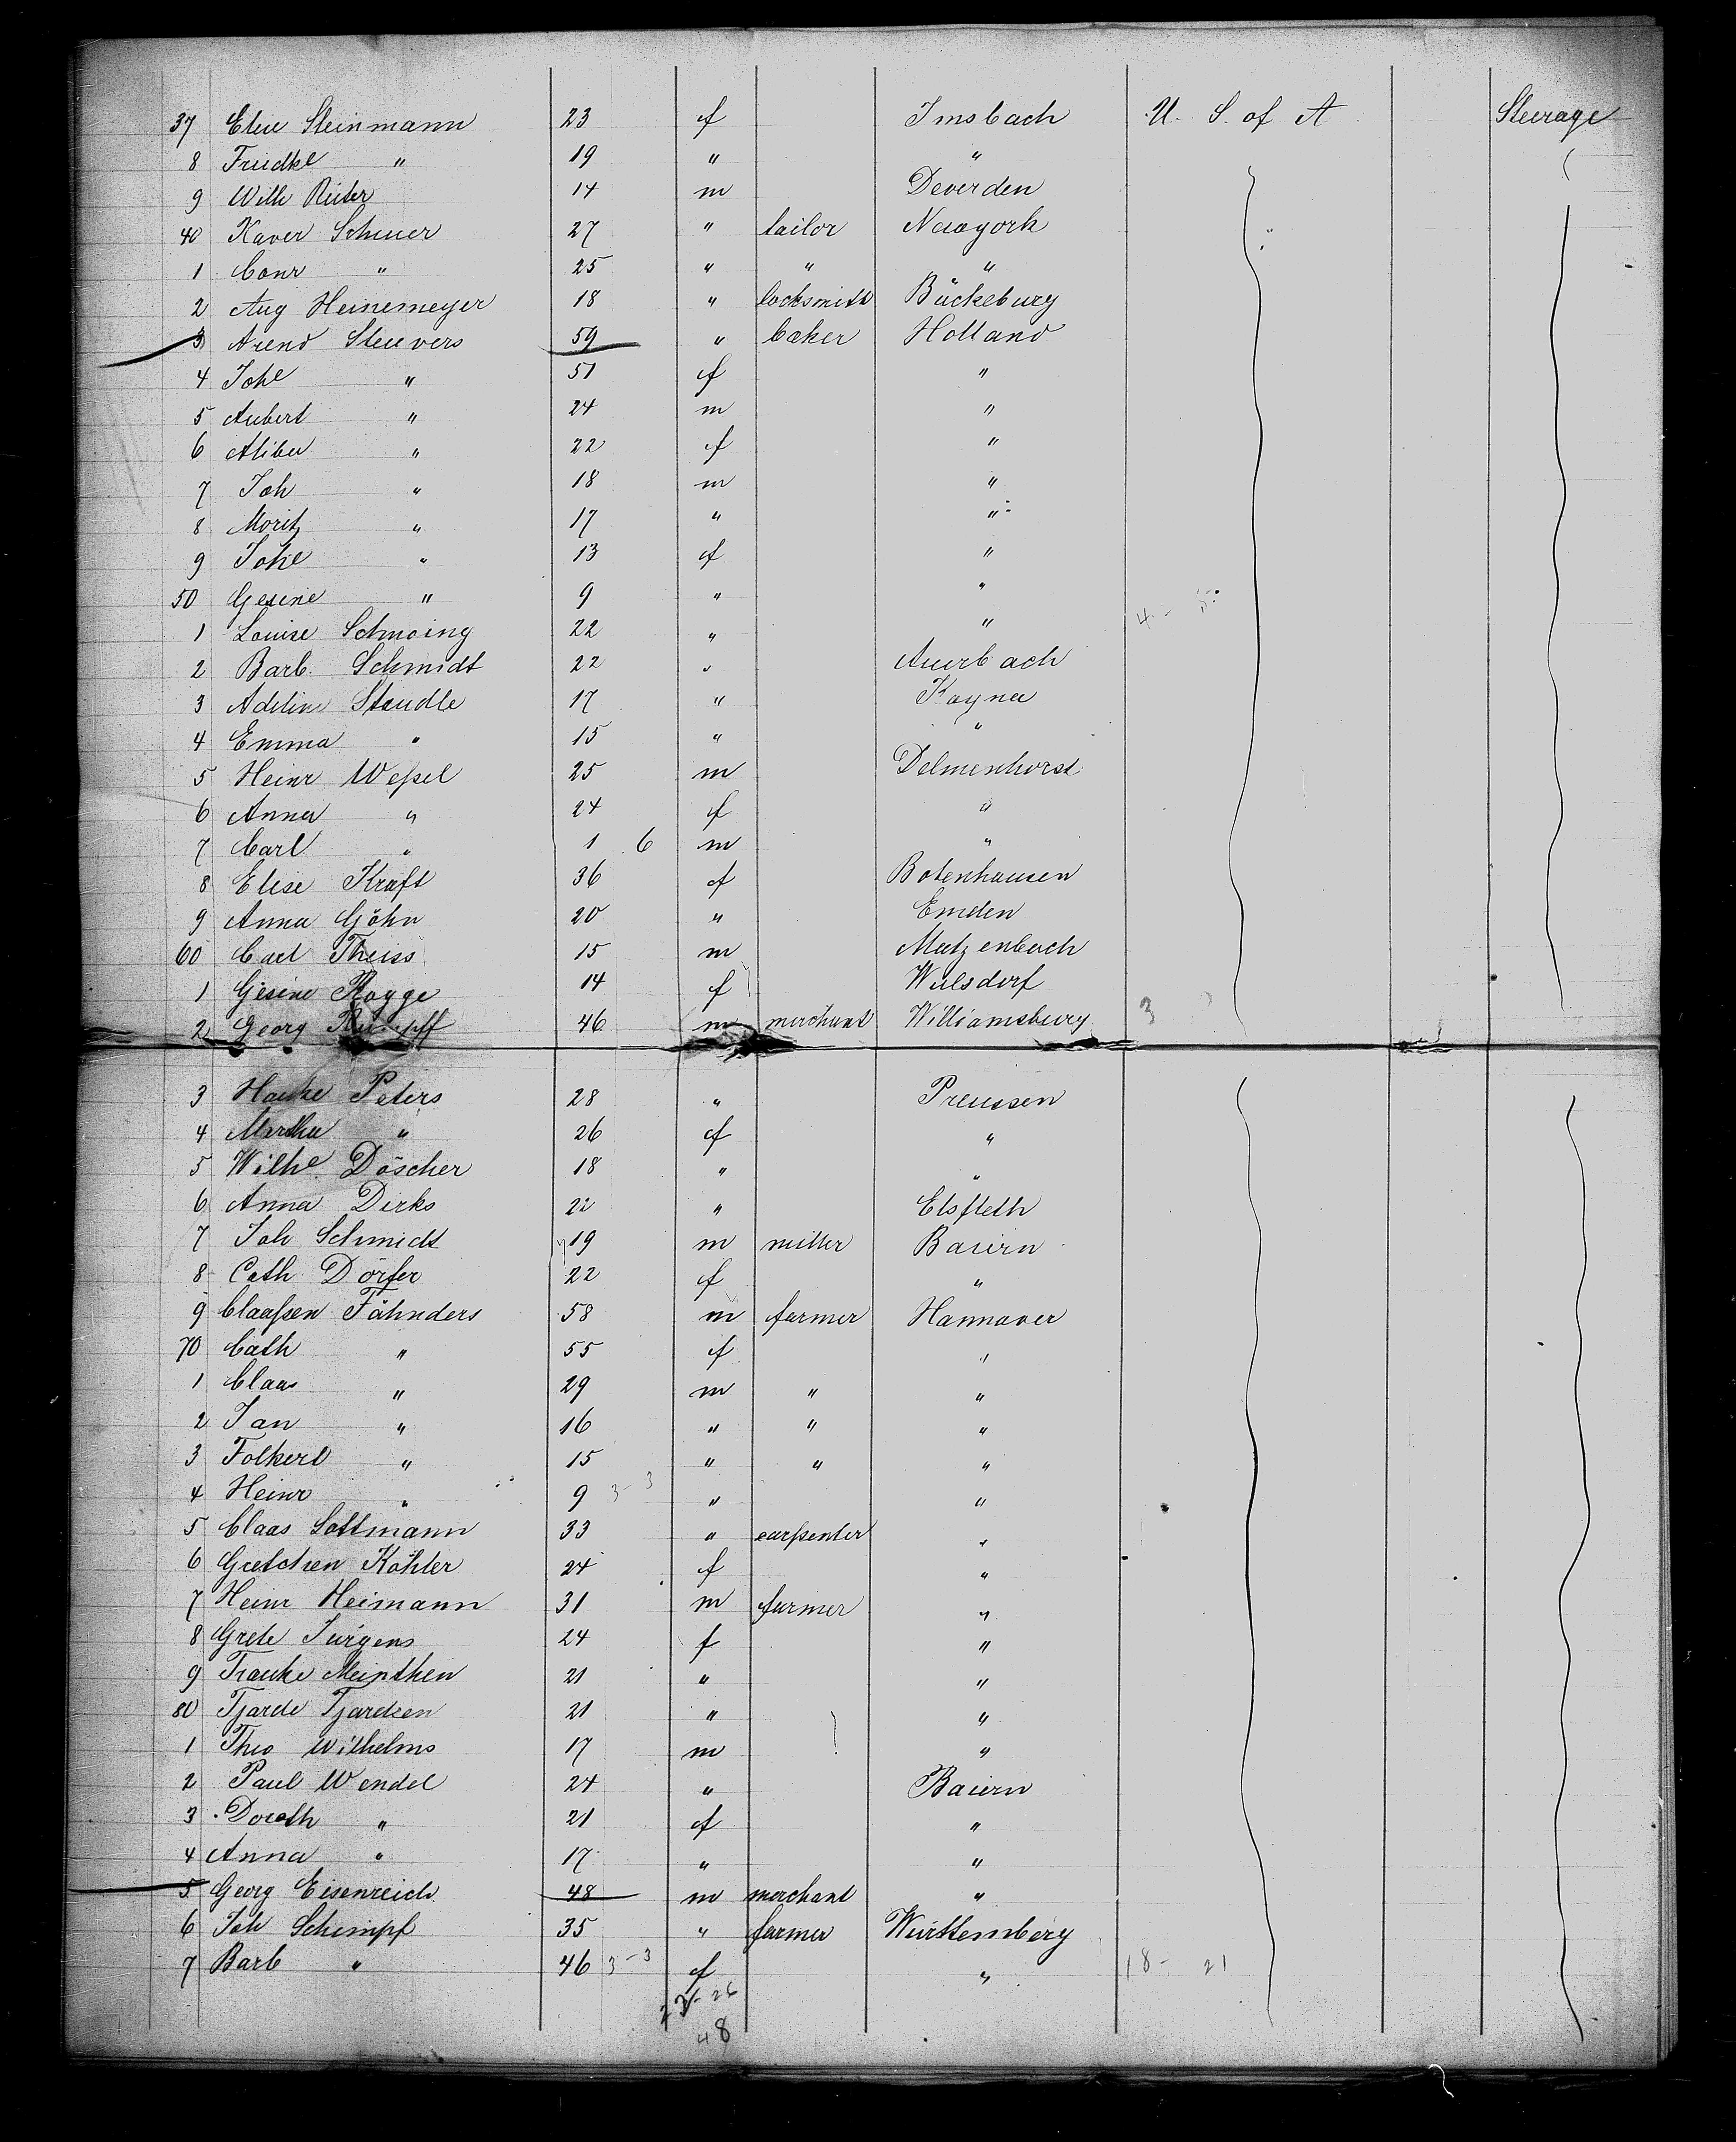 37 Elise Steinmann 23 f Imsbach U. S. of A Steerage
8 Friedke " 19 " "
9 Wilh Rüter 14 m Deverden
40 Xaver Scheuer 27 " tailor Newyork
1 Conr " 25 " " "
2 Aug Heinemeyer 18 " locksmith Bückeburg
3 Arend Stuevers 59 " baker Holland
4 Johe " 51 f "
5 Aubert " 24 m "
6 " 22 f "
7 Joh " 18 m "
8 Moritz " 17 " "
9 Johe " 13 f "
50 Gesine " 9 " "
1 Louise Schmoing 22 " " 4 - 5
2 Barb. Schmidt 22 " Auerbach
3 Adeline Staudle 17 " Kayna
4 Emma " 15 " "
5 Heinr Weßel 25 m Delmenhorst
6 Anna " 24 f "
7 Carl " 1 6 m "
8 Elise Kraft 36 f Botenhausen
9 Anna Göhn 20 " Emden
60 Carl Theiss 15 m Matzenbach
1 Gesine Rogge 14 f Wulsdorf
2 Georg Rumpff 46 m merchant Williamsburg 3
3 Hauke Peters 28 " Preussen
4 Martha " 26 f "
5 Wilhe. Döscher 18 " "
6 Anna Dirks 22 " Elsfleth
7 Joh Schmidt 19 m miller Baiern
8 Cath Dörfer 22 f "
9 Claaßen Fähnders 58 m farmer Hannover
70 Cath " 55 f "
1 Claas " 29 m " "
2 Jan " 16 " " "
3 Folkert " 15 " " "
4 Heinr " 9 3-3 " "
5 Claas Sottmann 33 " carpenter "
6 Gretchen Köhler 24 f "
7 Heinr Heimann 31 m farmer "
8 Grete Jürgens 24 f "
9 Trauke 21 " "
80 Tjarde Tjardsen 21 " "
1 Theo Wilhelms 17 m "
2 Paul Wendel 24 " Baiern
3 Doroth " 21 f "
4 Anna " 17 " "
5 Georg Eisenreich 48 m merchant "
6 Joh Schimpf 35 " farmer Württemberg
7 Barb " 46 3-3 f " 18 - 21
23-26
48